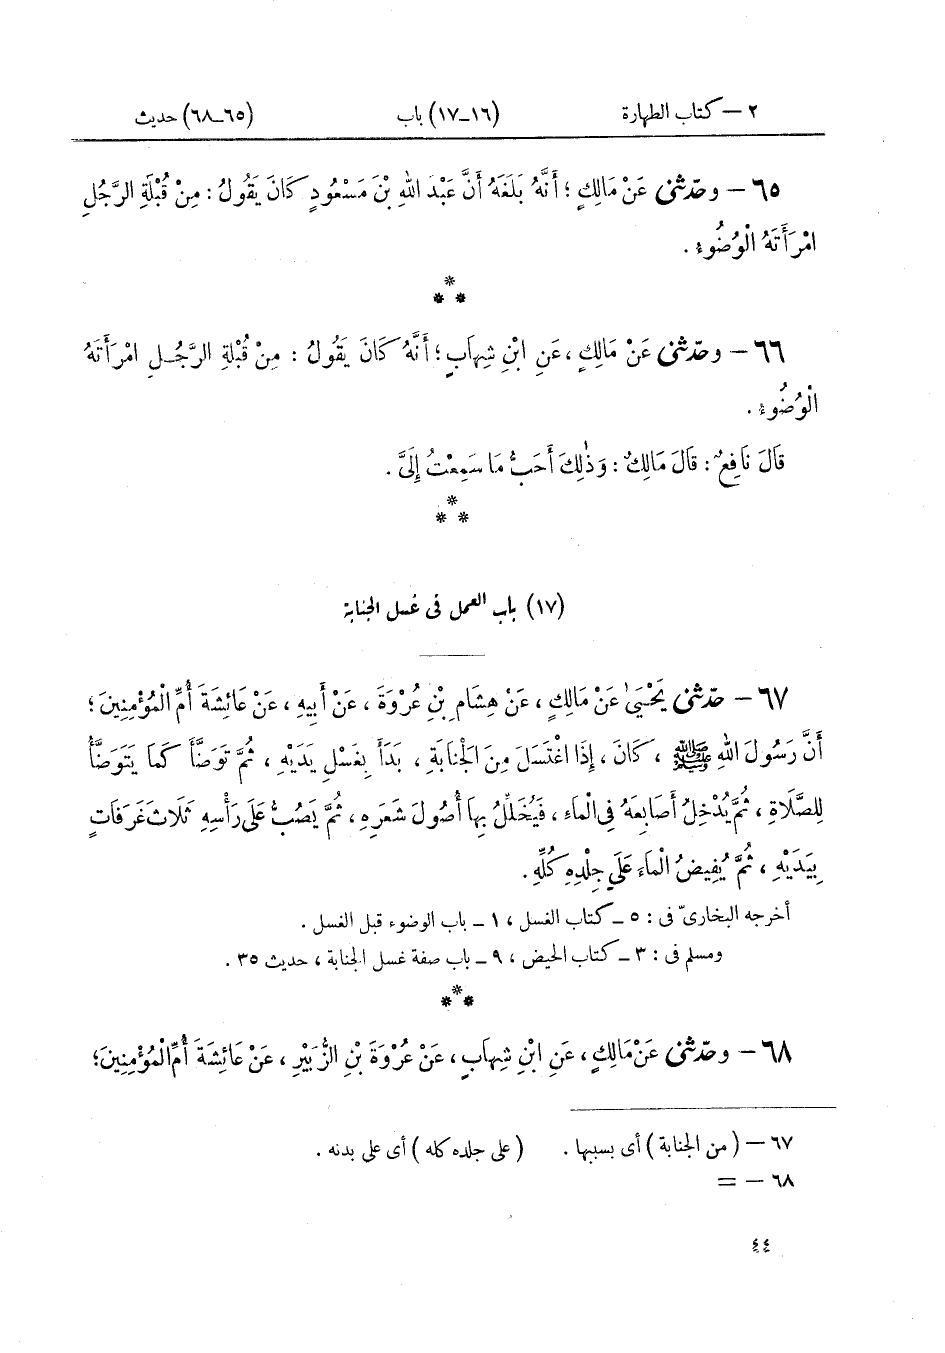 ٢ — كتاب الطهارة (١٦_١٧) باب (٦٥_٦٨) حديث
٦٥ — وحدّثنى عَنْ مَالِكٍ ؛ أَنَّهُ بَلَغَهُ أَنَّ عَبْدَ اللهِ بْنَ مَسْعُودٍ كَانَ يَقُولُ : مِنْ قُبْلَةِ الرَّجُلِ
امْرَأَتَهُ الْوُضُوءُ .
*
* *
٦٦ — وحدّثنى عَنْ مَالِكٍ ، عَنِ ابْنِ شِهاَبٍ ؛ أَنَّهُ كَانَ يَقُولُ : مِنْ قُبْلَةِ الرَّجُـلِ امْرَأَتَهُ
الْوُضُوءُ .
قَالَ نَافِعٌ : قَالَ مَالِكٌ : وَذٰلِكَ أَحَبُّ مَا سَمِعْتُ إِلَىَّ .
*
* *
(١٧) باب العمل فى غسل الجنابة
٦٧ — حدّثنى يَحْيَىٰ عَنْ مَالِكٍ ، عَنْ هِشَامِ بْنِ عُرْوَةَ ، عَنْ أَبِيهِ ، عَنْ عَائِشَةَ أُمِّ الْمُؤْمِنِينَ ؛
أَنَّ رَسُولَ اللهِ ﷺ ، كَانَ ، إِذَا اغْتَسَلَ مِنَ الْجَنَابَةِ ، بَدَأَ بِغَسْلِ يَدَيْهِ ، ثُمَّ تَوَضَّأَ كَمَا يَتَوَضَّأُ
لِلصَّلَاةِ ، ثُمَّ يُدْخِلُ أَصَابِعَهُ فِى الْمَاءِ ، فَيُخَلِّلُ بِهَا أُصُولَ شَعَرِهِ ، ثُمَّ يَصُبُّ عَلَى رَأْسِهِ ثَلَاثَ غَرَفَاتٍ
بِيَدَيْهِ ، ثُمَّ يُفِيضُ الْمَاءَ عَلَى جِلْدِهِ كُلِّهِ .
أخرجه البخارىّ فى : ٥ _ كتاب الغسل ، ١ _ باب الوضوء قبل الغسل .
ومسلم فى : ٣ _ كتاب الحيض ، ٩ _ باب صفة غسل الجنابة ، حديث ٣٥ .
*
* *
٦٨ — وحدّثنى عَنْ مَالِكٍ ، عَنِ ابْنِ شِهاَبٍ ، عَنْ عُرْوَةَ بْنِ الزُّبَيْرِ ، عَنْ عَائِشَةَ أُمِّ الْمُؤْمِنِينَ ؛
٦٧ — ( من الجنابة ) أى بسببها . ( على جلده كله ) أى على بدنه .
٦٨ — =
٤٤